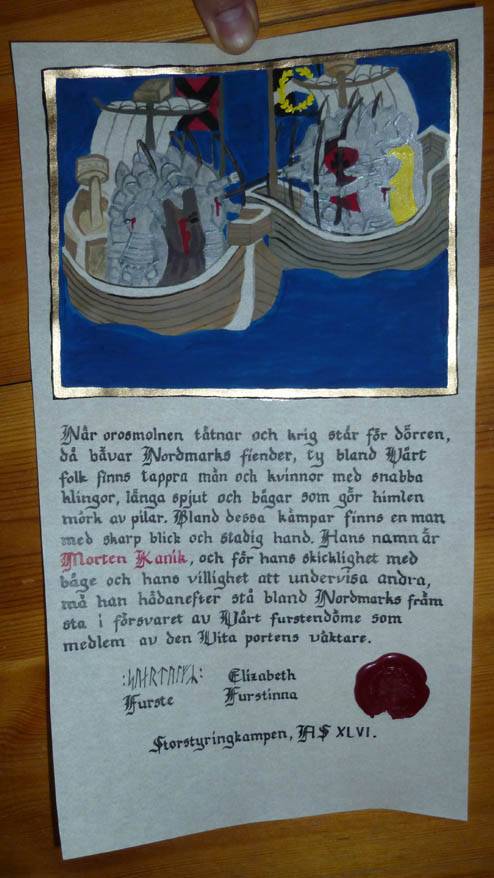 När orosmolnen tätnar och krig står för dörren,
då bävar Nordmarks fiender, ty bland Vårt
folk finns tappra män och kvinnor med snabba
klingor, långa spjut och bågar som gör himlen
mörk av pilar. Bland dessa kämpar finns en man
med skarp blick och stadig hand. Hans namn är
Morten Kanik, och för hans skicklighet med
båge och hans villighet att undervisa andra,
må han hädanefter stå bland Nordmarks främ
sta i försvaret av Vårt furstendöme som
medlem av den Vita portens väktare.
Elizabeth
Furste Furstinna
Storstyringkampen, AS XLVI.